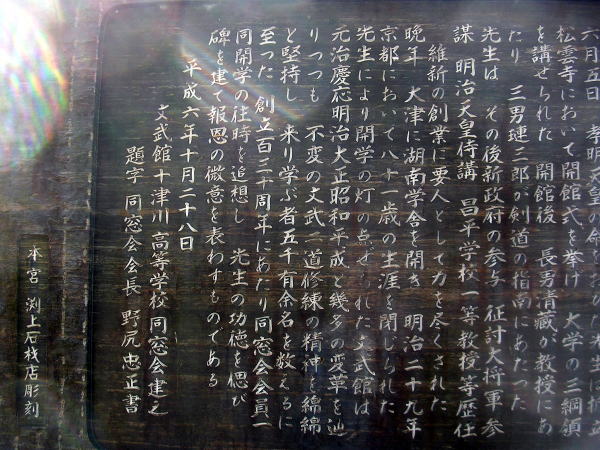 六月五日 孝明天皇の命をおびた先生は折立
松雲寺において開館式を挙げ 大学の三綱領
を講ぜられた 開館後 長男清蔵が教授にあ
たり 三男璉三郎が剣道の指南にあたった
先生は その後新政府の参与 征討大将軍参
謀 明治天皇侍講 昌平学校一等教授等歴任
維新の創業に要人として力を尽くされた
晩年 大津に湖南学舎を開き 明治二十九年
京都において八十一歳の生涯を閉じられた
先生により開学の灯の点ぜられた文武館は
元治慶応明治大正昭和平成と幾多の変革を辿
りつつも 不変の文武二道修練の精神を綿綿
と堅持し 来り学ぶ者五千有余名を数えるに
至った 創立百三十周年にあたり同窓会会員一
同開学の往時を追想し 先生の功徳を偲び
碑を建て報恩の微意を表わすものである
平成六年十月二十八日
文武館十津川高等学校同窓会建之
題字 同窓会会長 野尻忠正書
本宮 渕上石材店彫刻